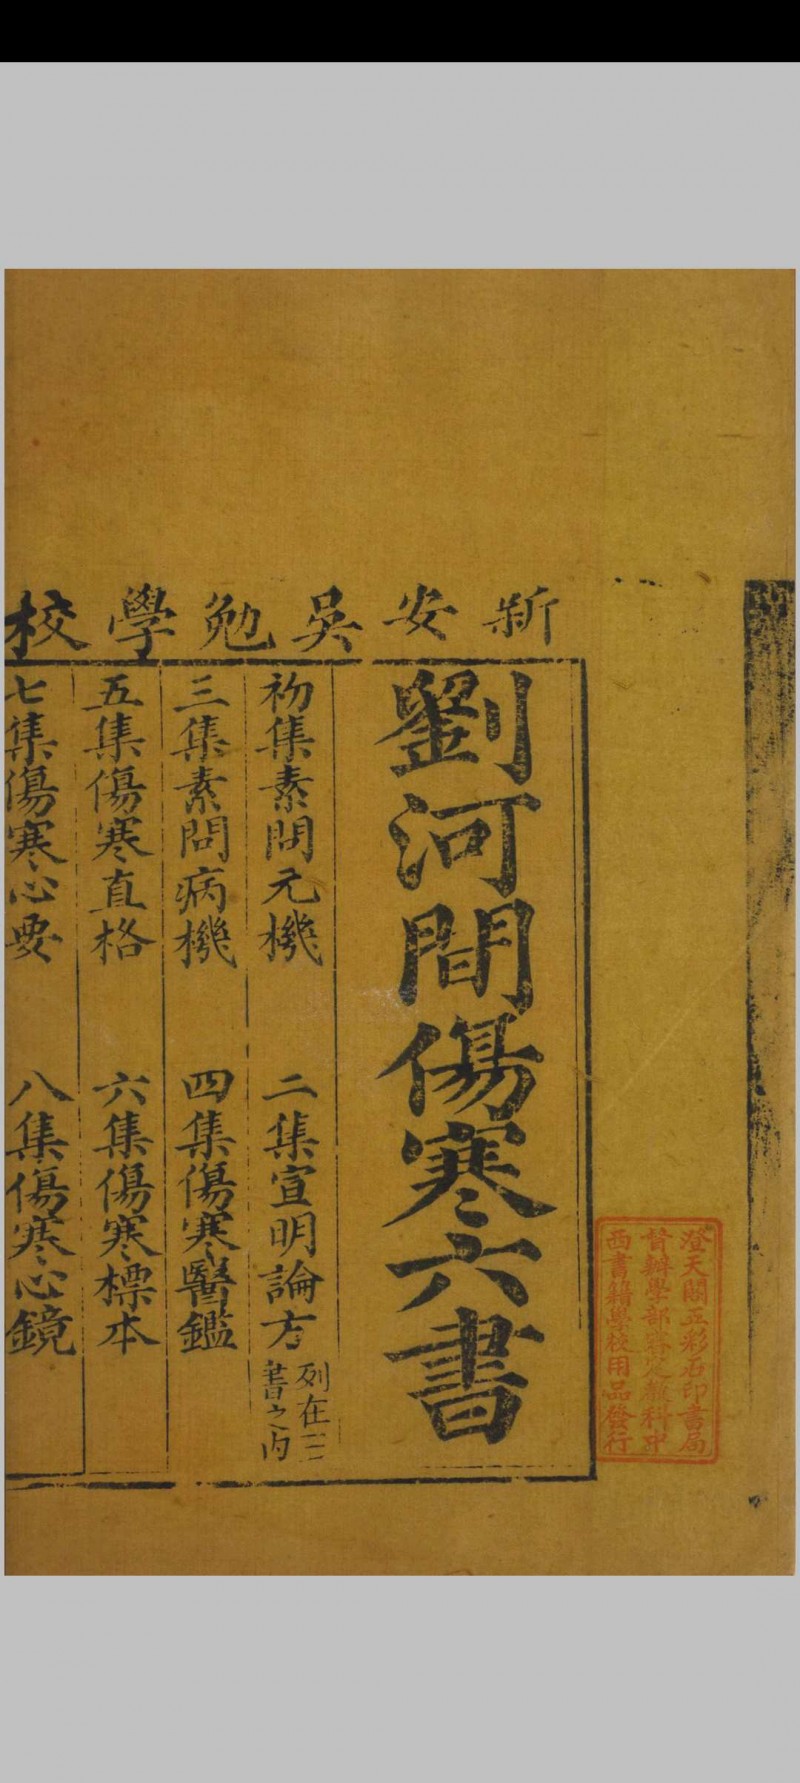 新安吳勉學校
劉河間傷寒六書
初集素問元機 二集宣明論方 列在三書之內
三集素問病機 四集傷寒醫鑑
五集傷寒直格 六集傷寒標本
七集傷寒心要 八集傷寒心鏡
澄天閣五彩石印書局
督辦學部審定教科中
西書籍學校用品發行